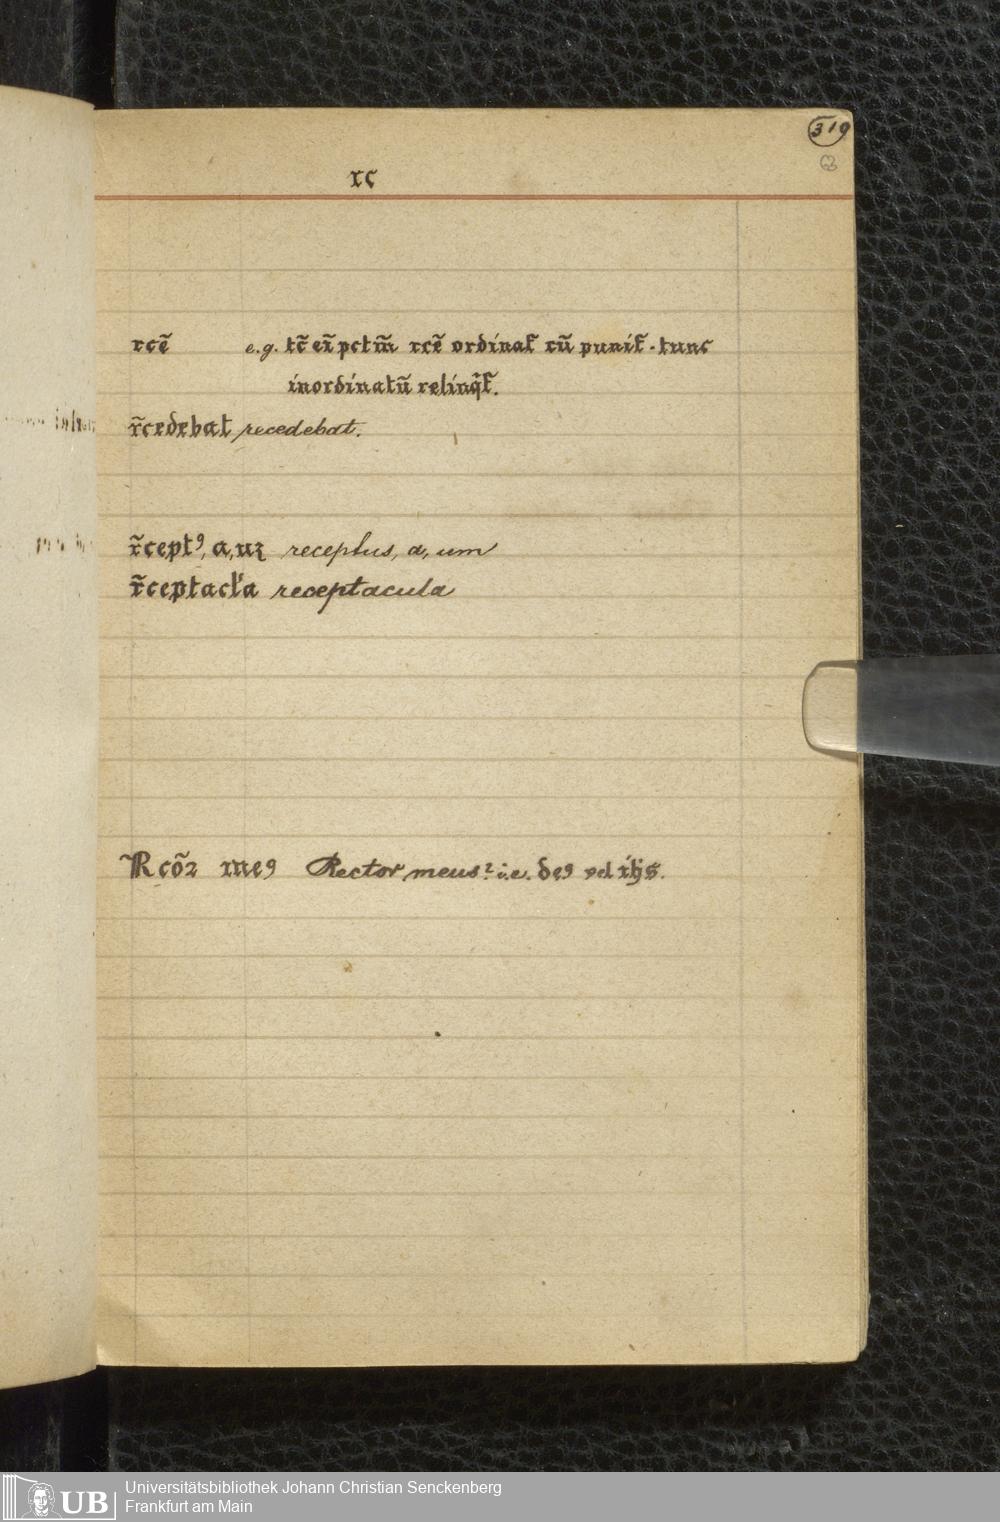 319
rc
rcē e.g. tc̄ eī pctm̄ rcē ordinat̄ cū punit̄ · tunc
inordinatū relinq̄t̄.
r̄cedebat recedebat.
r̄ceptꝰ, a, uꝫ receptus, a, um
r̄ceptacl̓a receptacula
Rcōꝛ meꝰ Rector meus? i.e. deꝰ vel ihs̄.
UB Universitätsbibliothek Johann Christian Senckenberg
Frankfurt am Main